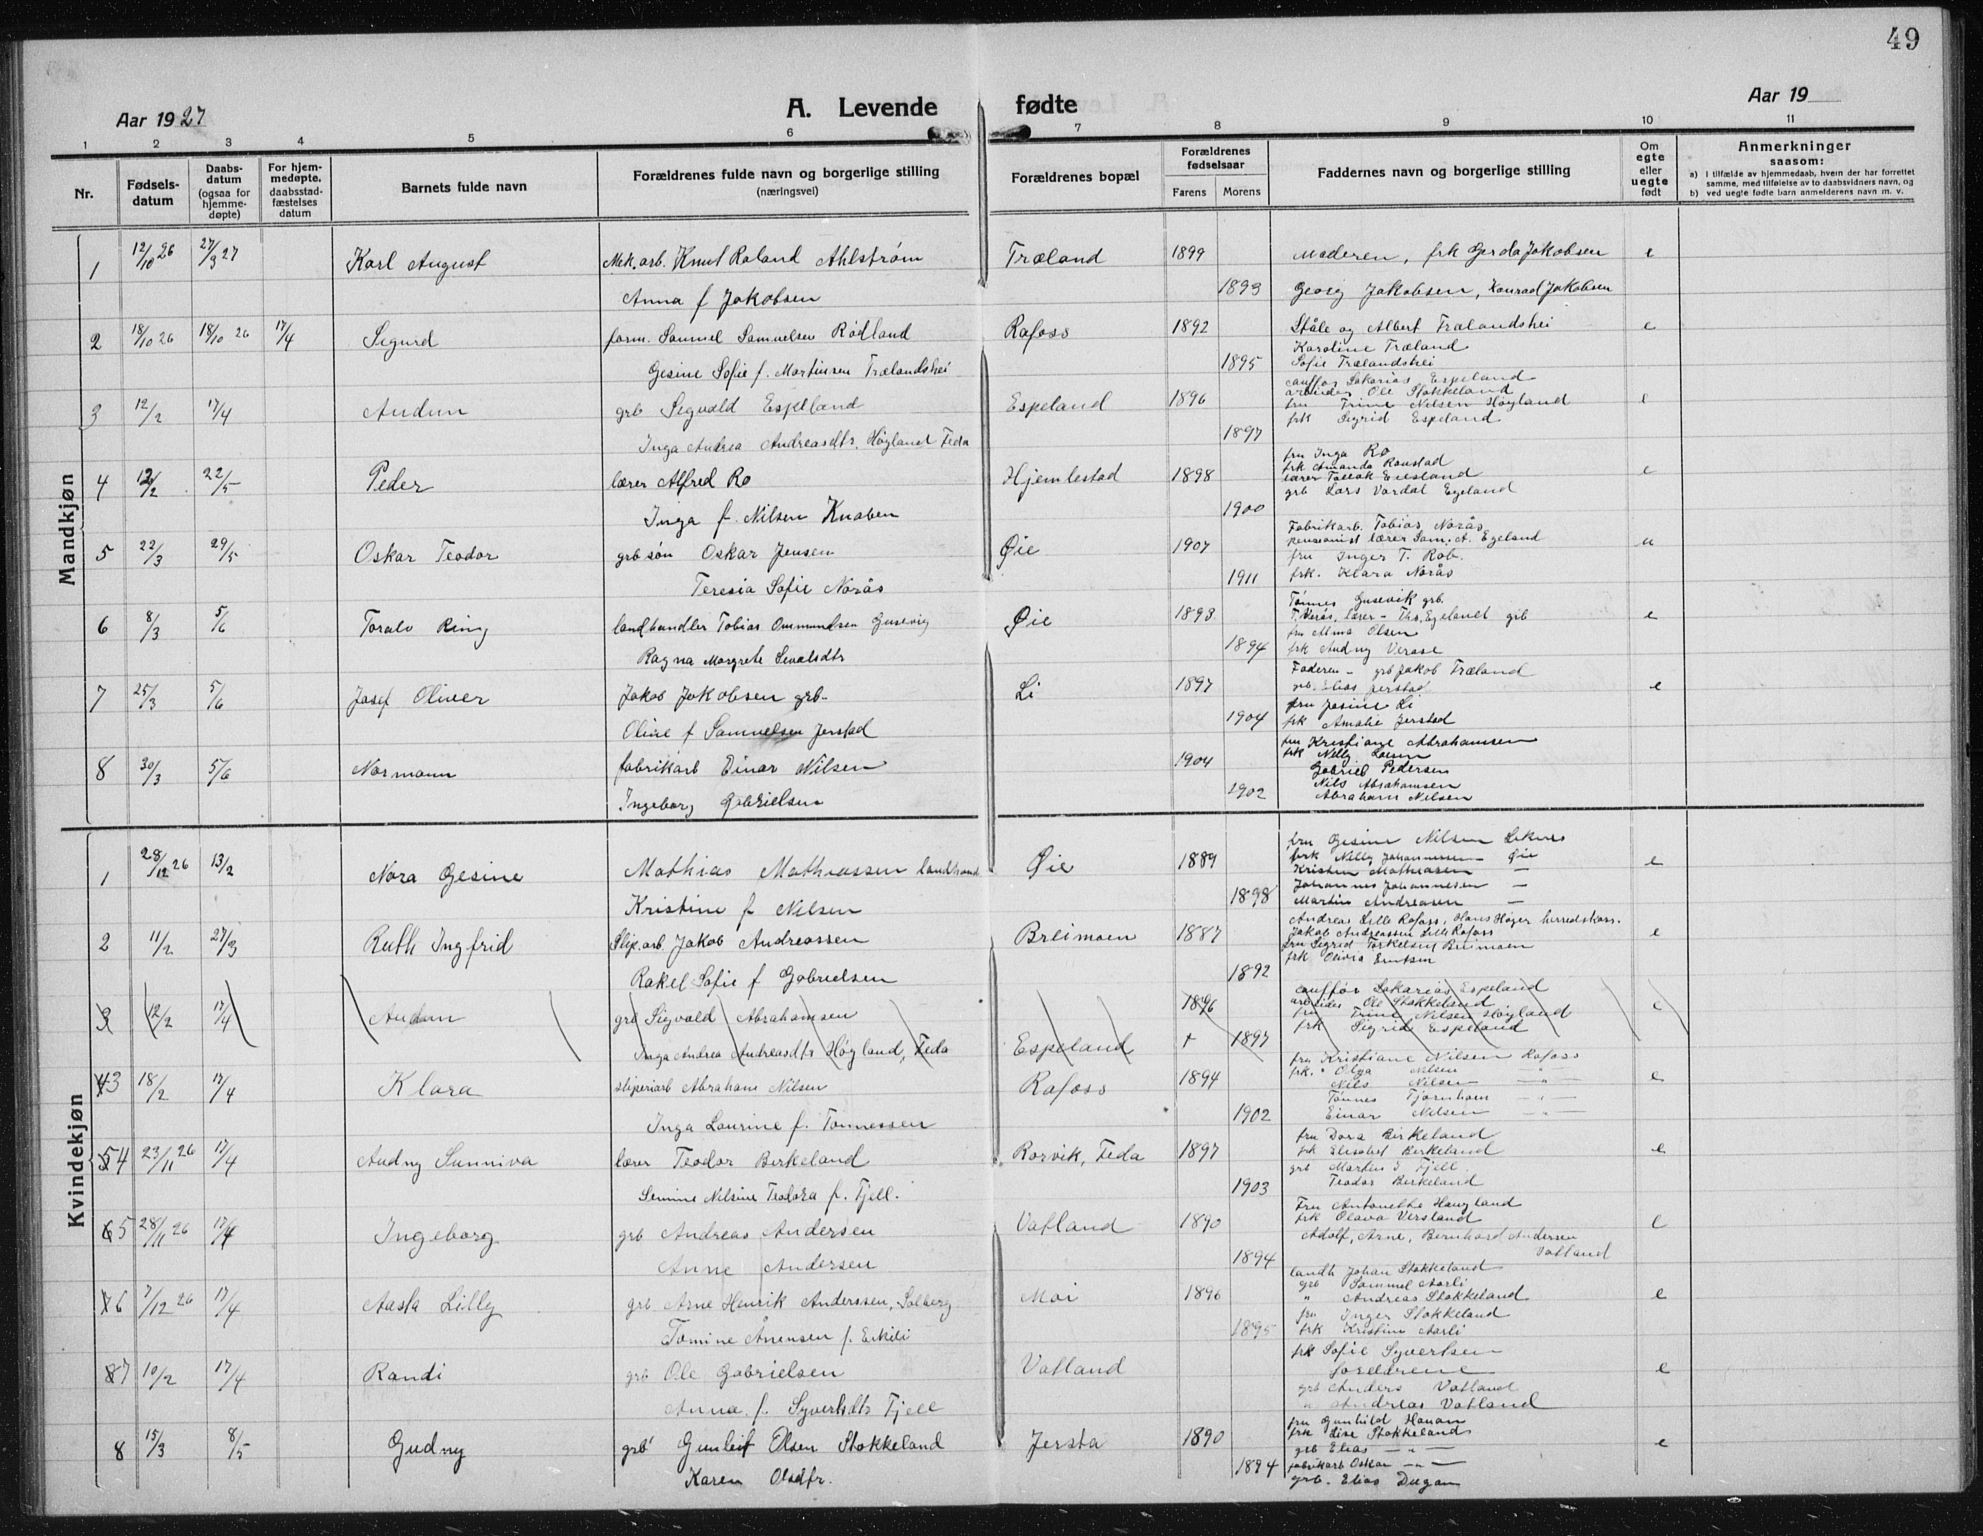 49
Aar 1927
A. Levende fødte
Aar 19
1 2 3 4 5 6 7 8 9 10 11
Nr.
Fødsels-datum
Daabs-datum (ogsaa for hjemme-døpte)
For hjem-medøpte, daabsstad-fæstelses datum
Barnets fulde navn
Forældrenes fulde navn og borgerlige stilling (næringsvei)
Forældrenes bopæl
Forældrenes fødselsaar
Farens Morens
Faddernes navn og borgerlige stilling
Om egte eller uegte født
Anmerkninger saasom:
a) I tilfælde av hjemmedaab, hvem der har forrettet samme, med tilføielse av to daabsvidners navn, og
b) ved uegte fødte barn anmelderens navn m. v.
Mandkjøn
1 12/10 26 27/3 27 Karl August Mek. arb. Knut Roland Ahlstrøm Træland 1899 Moderen, frk Gerda Jakobsen e
Anna f Jakobsen 1893 Georg Jakobsen, Konrad Jakobsen
2 18/10 26 18/10 26 17/4 Sigurd form. Samuel Samuelsen Rødland Rafoss 1892 Ståle og Albert Trælandshei e
Karoline Træland
Gesine Sofie f. Martinsen Trælandshei 1895 Sofie Trælandshei
3 12/2 17/4 Audun grb Sigvald Espeland Espeland 1896 cauffør Sakarias Espeland e
arbeider Ole Stokkeland
fru Trine Nilsen Høyland
frk Sigrid Espeland
Inga Andrea Andreasdtr. Høyland Feda 1897
4 12/2 22/5 Peder lærer Alfred Ro Hjemlestad 1898 fru Inga Ro e
frk Amanda Ronstad
lærer Tallak Eiesland
grb Lars Vordal Egeland
Inga f. Nilsen Knaben 1900
5 22/3 29/5 Oskar Teodor grb søn Oskar Jensen Øie 1907 Fabrikarb. Tobias Norås u
pensionist lærer Sam. A. Egeland
fru Inger T. Rob.
Teresia Sofie Norås 1911 frk. Klara Norås
6 8/3 5/6 Toralv Ring landhandler Tobias Ommundsen Gusevig Øie 1893 Tønnes Gusevik grb. e
T. Verås, lærer - Ths. Egelandt grb
fru Alma Olsen
Ragna Margrete Sevaldsdtr 1894 frk Audny Verase
7 25/3 5/6 Josef Oliver Jakob Jakobsen grb- Li 1897 Faderen - grb Jakob Træland e
grb. Elias Jerstad
fru Josine Li
Olive f Samuelsen Jerstad 1904 frk Amalie Jerstad
8 30/3 5/6 Normann fabrikarb Einar Nilsen 1904 fru Kristiane Abrahamsen
frk Nelly Larsen
Gabriel Pedersen
Ingeborg Gabrielsen 1902 Nils Abrahamsen
Abraham Nilsen
Kvindekjøn
1 28/12 26 13/2 Nora Gesine Mathias Mathiassen landhand Øie 1889 fru Gesine Nilsen Leknes e
frk Nelly Johannessen - Øie
Kristen Mathiasen -
Kristine f Nilsen 1898 Johannes Johannesen -
Martin Andreasen -
2 11/2 27/3 Ruth Ingfrid Slip. arb. Jakob Andreassen Breimoen 1887 Andreas Lille Rafoss, Hans Høyer herredskass. e
Jakob Andreassen Lille Rafoss
fru Sigrid Torkelsen Breimoen
Rakel Sofie f Gabrielsen 1892 frk Olivia
3 12/2 17/4 Audun grb Sigvald Abrahamsen 1896 cauffør Sakarias Espeland e
arbeider Ole Stokkeland
fru Trine Nilsen Høyland
frk Sigrid Espeland
Inga Andrea Andreasdtr Høyland, Feda Espeland + 1897
43 18/2 17/4 Klara sliperiarb Abraham Nilsen Rafoss 1894 fru Kristiane Nilsen Rafoss e
frk. " Olga Nilsen - " -
Nils Nilsen - " -
Tønnes Tjørnhom - " -
Inga Laurine f. Tønnessen 1902 Einar Nilsen - " -
54 23/11 26 17/4 Audny Sunniva lærer Teodor Birkeland Rørvik, Feda 1897 fru Dora Birkeland e
frk Elisabet Birkeland
grb Martin S Fjell
Semine Nilsine Teodora f. Fjell. 1903 Teodor Birkeland
65 28/11 26 17/4 Ingeborg grb Andreas Andersen Vatland 1890 Fru Antonette Haugland e
frk Olava Versland
Adolf, Arne, Bernhard Andersen Vatland
Anne Andersen 1894
76 7/12 26 17/4 Aasta Lilly grb. Arne Henrik Anderssen, Solberg Moi 1896 landh Johan Stokkeland e
grb Sammel Aarli
" Andreas Stokkeland
fru Inger Stokkeland
Tomine Ånensen f. Eikili 1895 frk Kristine Aarli
87 10/2 17/4 Randi grb Ole Gabrielsen Vatland frk Sofie Syvertsen e
foreldrene
grb Anders Vatland
Anna f. Syvertsdtr Fjell " Andreas Vatland
8 15/3 8/5 Gudny grb' Gunleif Olsen Stokkeland Jersta 1890 fru Gunhild Hanan e
frk Lise Stokkeland
grb Elias - " -
Karen Olsdtr. 1894 fabrikarb Oskar - " -
grb. Elias Dugan